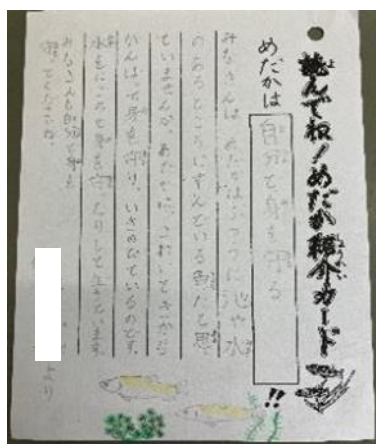 読んでね！めだか紹介カード
しょうかい
めだかは
自分で身を守る
!!
みなさんは、めだかはふつうに池や水
のあるところにすんでいる魚だと思
っていませんか。めだかは、
かんばって身を守り、いきのびているのです。
身を守ったりして生きています。
みなさんも自分で身を
守ってくださいね。
より